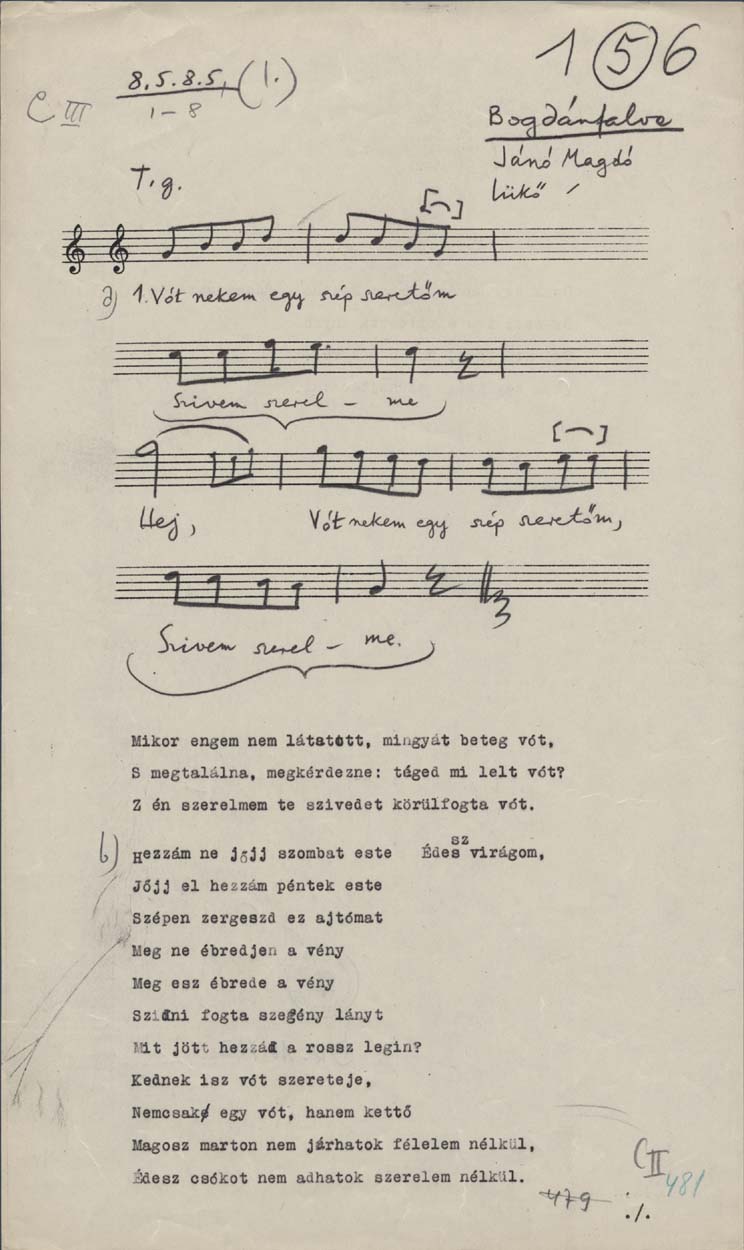 1 5 6
8.5.8.5. (1.)
C III
1-8
Bogdánfalva
Jánó Magdó
Lükő
T.g.
a) 1. Vót nekem egy szép szeretőm
Szivem szerel - me
Hej, Vót nekem egy szép szeretőm,
Szivem szerel - me.
Mikor engem nem látatott, mingyát beteg vót,
S megtalálna, megkérdezne: táged mi lelt vót?
Z én szerelmem te szivedet körülfogta vót.
b) Hezzám ne jőjj szombat este Édesz virágom,
Jőjj el hezzám péntek este
Szépen zergeszd ez ajtómat
Meg ne ébredjen a vény
Meg esz ébrede a vény
Szidni fogta szegény lányt
Mit jött hezzád a rossz legin?
Kednek isz vót szereteje,
Nemcsak egy vót, hanem kettő
Magosz marton nem járhatok félelem nélkül,
Édesz csókot nem adhatok szerelem nélkül.
C II
479 481
./.